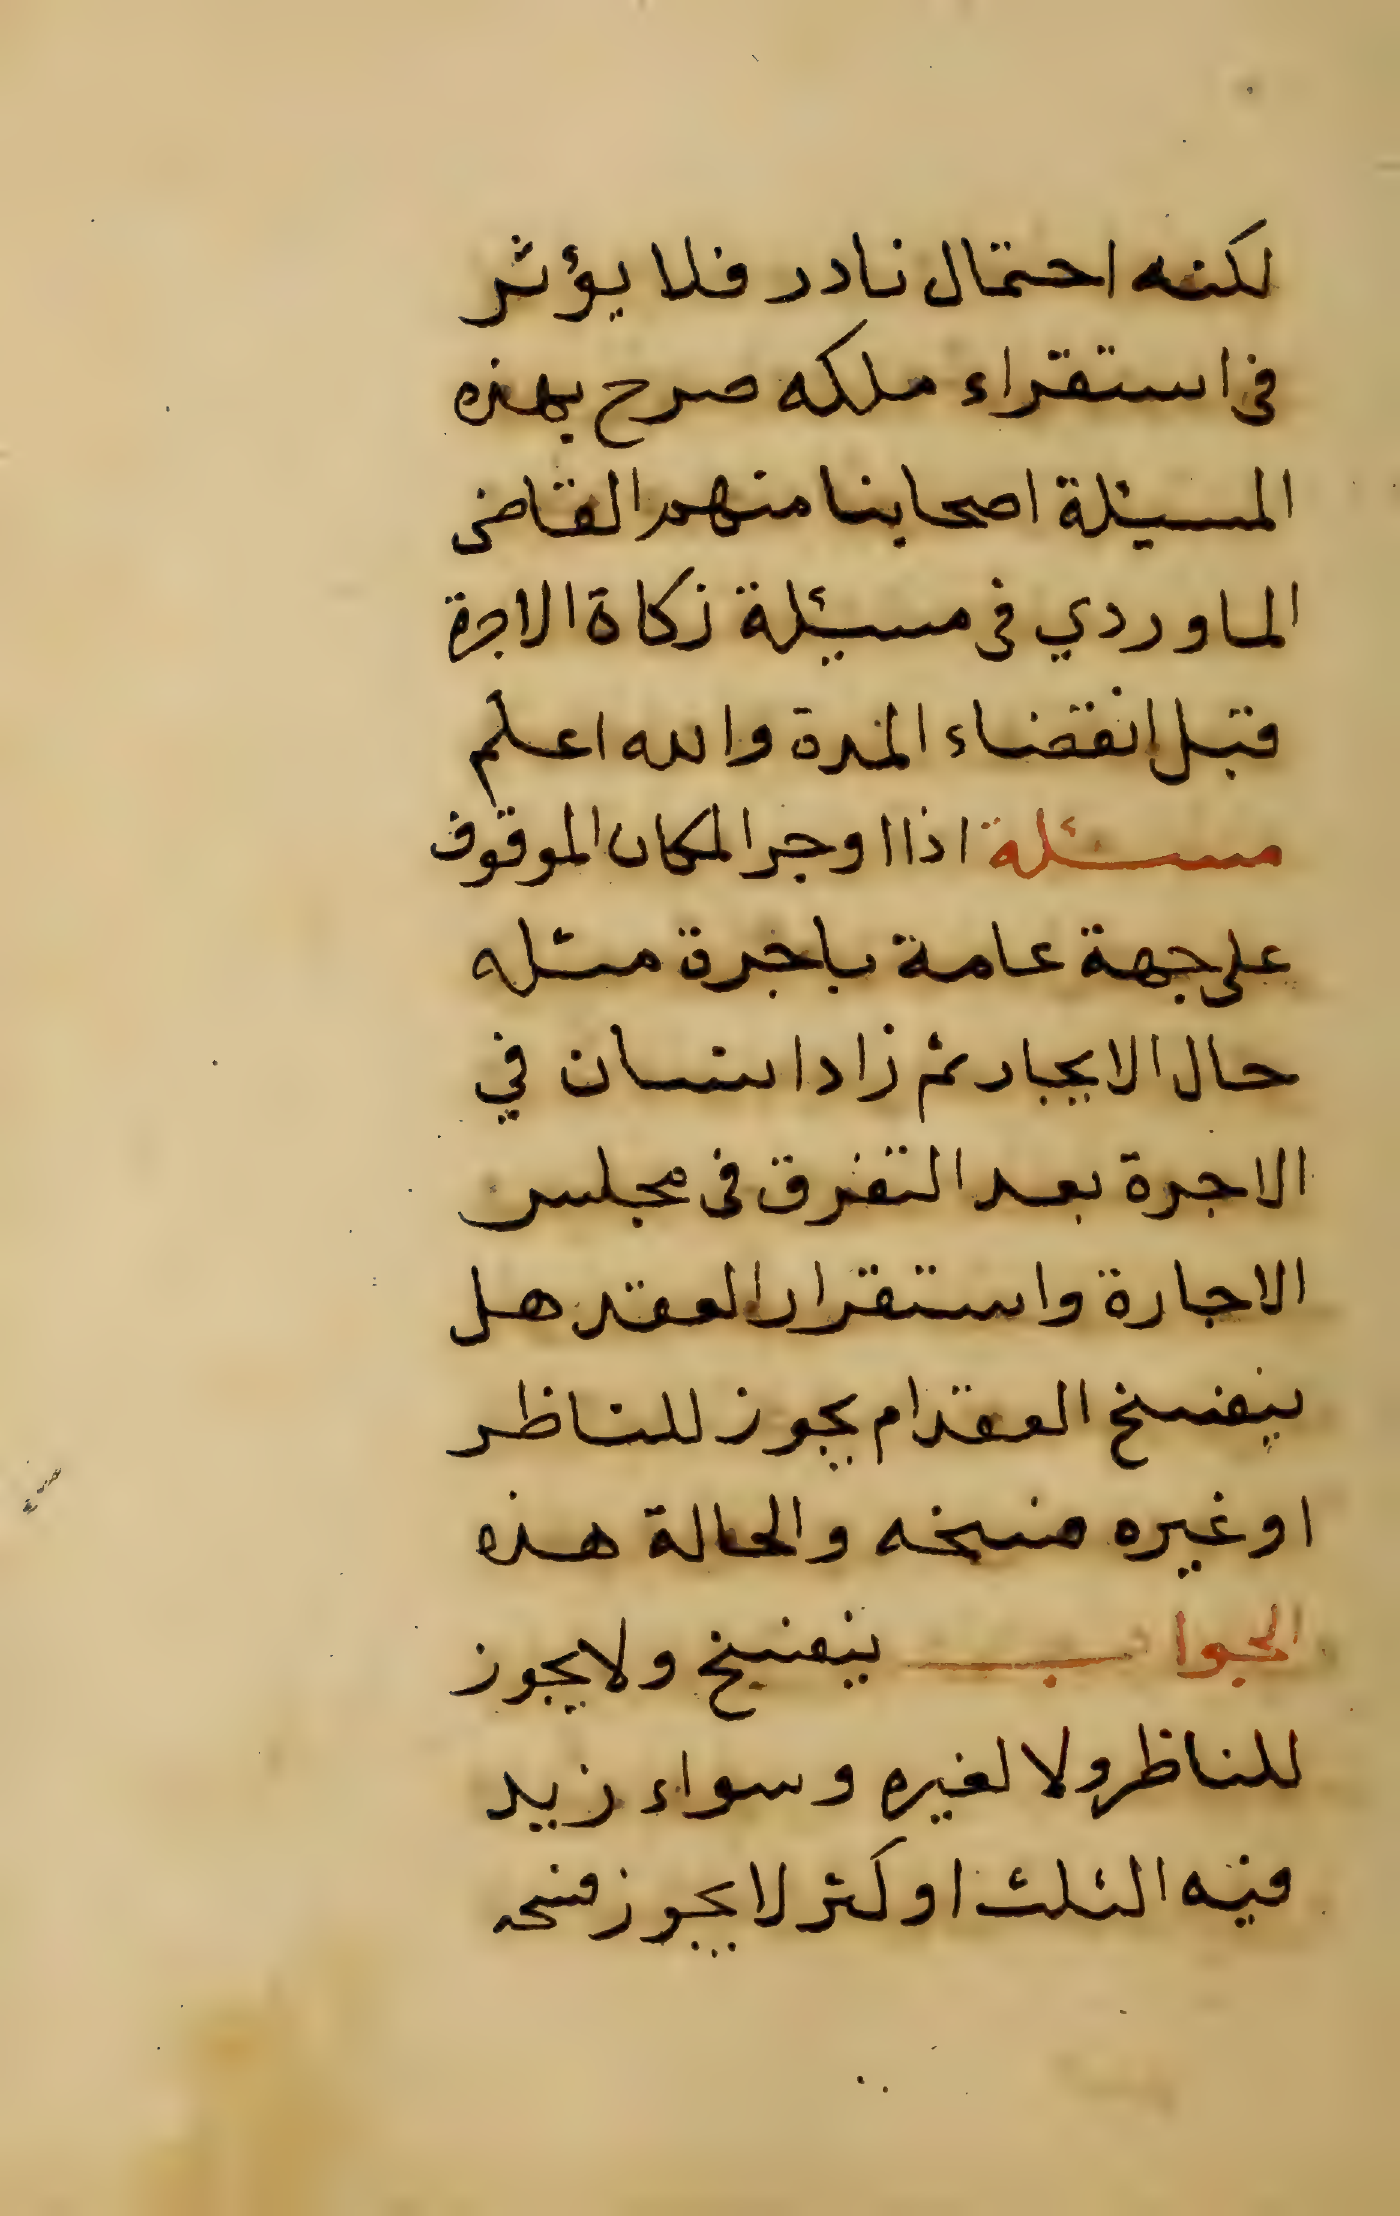 لكنه احتمال نادر فلا يؤثر
فى استقراء ملكه صرح بهذه
المسيئلة اصحابنا منهم القاضى
الماوردي فى مسيئلة زكاة الاجرة
قبل انقضاء المدة والله اعلم
مسئلة اذا اوجر المكان الموقوف
على جهة عامة باجرة مثله
حال الايجار ثم زاد انسان في
الاجرة بعد التفرق فى مجلس
الاجارة واستقرار العقد هل
ينفسخ العقد ام يجوز للناظر
او غيره فسخه والحالة هذه
الجواب ينفسخ ولا يجوز
للناظر ولا لغيره وسواء زيد
فيه الثلث او كثر لا يجوز فسخه